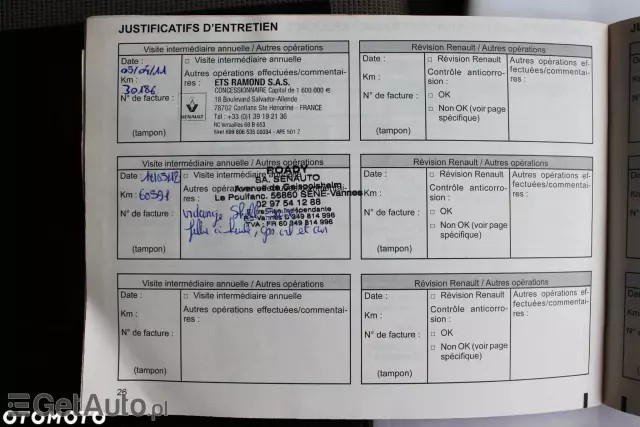 JUSTIFICATIFS D'ENTRETIEN
Visite intermédiaire annuelle / Autres opérations
Date : 05/04/11
Km : 30186
N° de facture :
(tampon)
□ Visite intermédiaire annuelle
Autres opérations effectuées/commentaires :
ETS RAMOND S.A.S.
CONCESSIONNAIRE Capital de 1 600 000 €
18 Boulevard Salvador-Allende
78702 Conflans Ste Honorine - FRANCE
Tél : +33 (0)1 39 19 21 36
RC Versailles 69 B 653
Siret 699 806 535 00034 - APE 501 Z
RENAULT
Révision Renault / Autres opérations
Date :
Km :
N° de facture :
(tampon)
□ Révision Renault
Contrôle anticorro-
sion :
□ OK
□ Non OK (voir page
spécifique)
Autres opérations ef-
fectuées/commentai-
res :
Visite intermédiaire annuelle / Autres opérations
Date :
Km : 60591
N° de facture :
(tampon)
□ Visite intermédiaire annuelle
ROADY
SA. SENAUTO
Avenue de Geispolsheim
Le Poulfanc. 56860 SENE-Vannes
02 97 54 12 88
Entreprise Indépendante
349 814 996
TVA : FR 60 349 814 996
vidange
filtre
Révision Renault / Autres opérations
Date :
Km :
N° de facture :
(tampon)
□ Révision Renault
Contrôle anticorro-
sion :
□ OK
□ Non OK (voir page
spécifique)
Autres opérations ef-
fectuées/commentai-
res :
Visite intermédiaire annuelle / Autres opérations
Date :
Km :
N° de facture :
(tampon)
□ Visite intermédiaire annuelle
Autres opérations effectuées/commentai-
res :
Révision Renault / Autres opérations
Date :
Km :
N° de facture :
(tampon)
□ Révision Renault
Contrôle anticorro-
sion :
□ OK
□ Non OK (voir page
spécifique)
Autres opérations ef-
fectuées/commentai-
res :
26
GetAuto.pl
OTOMOTO